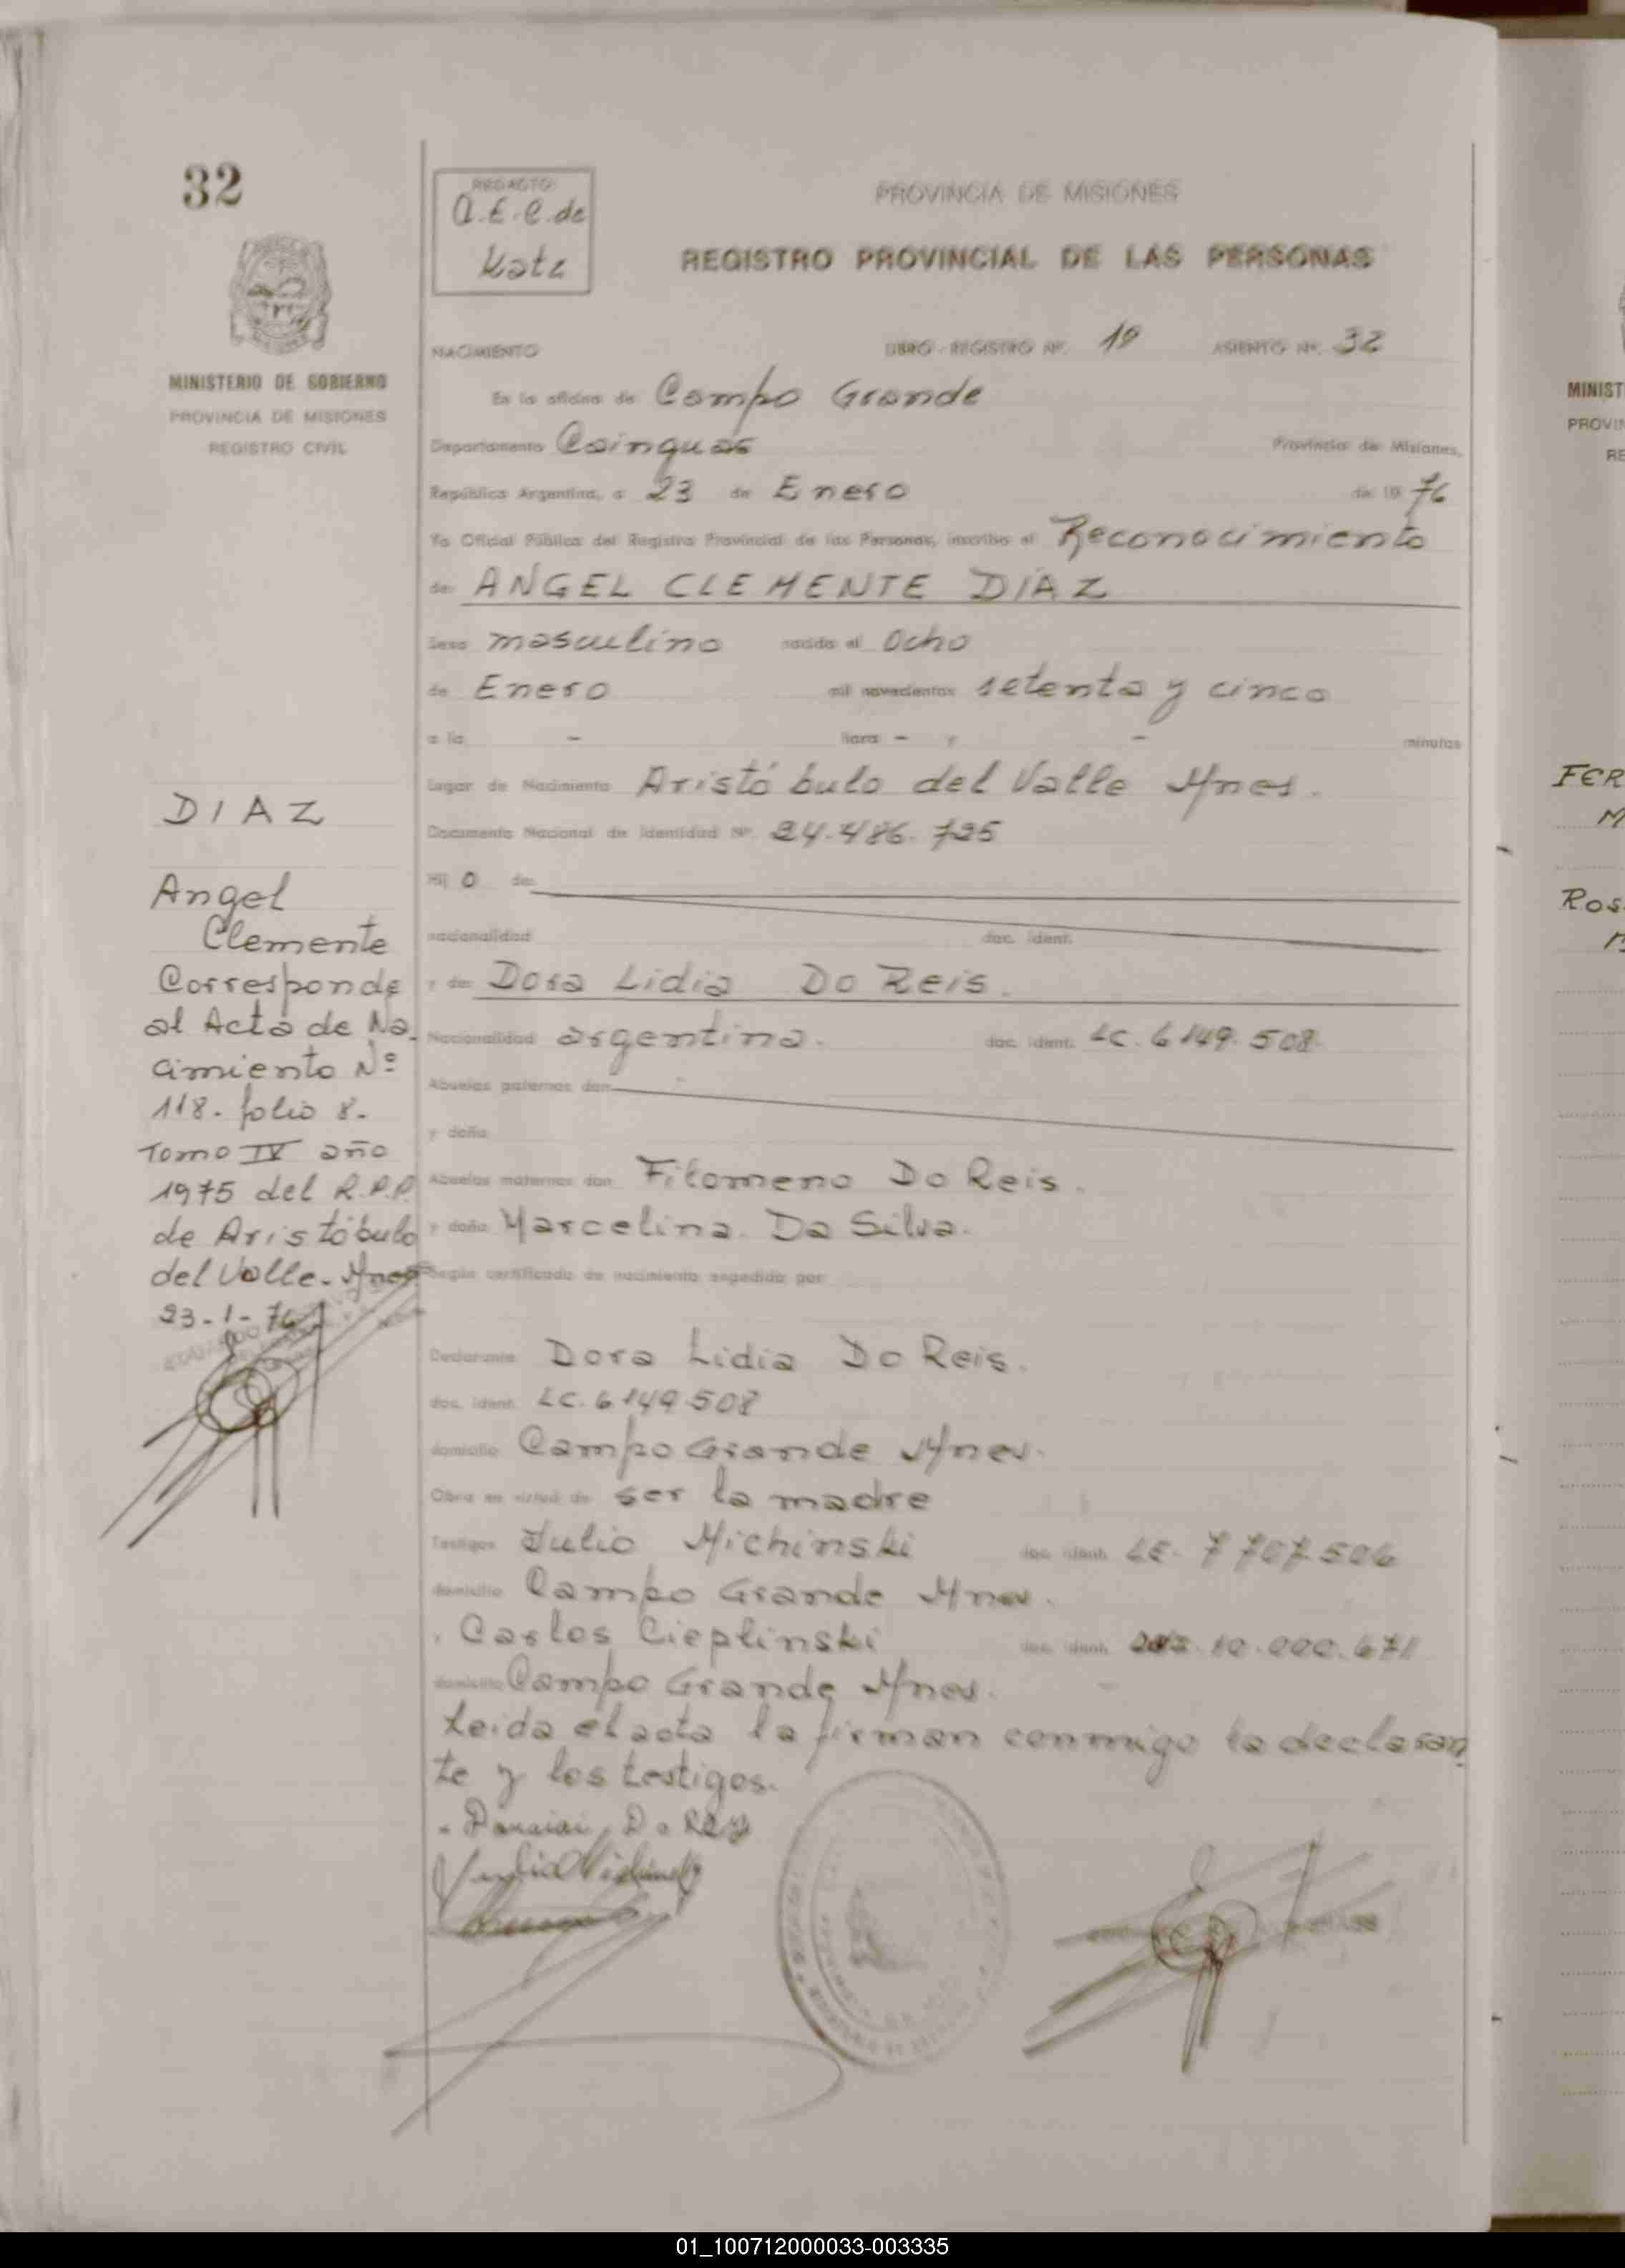 32
MINISTERIO DE GOBIERNO
PROVINCIA DE MISIONES
REGISTRO CIVIL
REDACTO:
A.E.C. de
PROVINCIA DE MISIONES
REGISTRO PROVINCIAL DE LAS PERSONAS
NACIMIENTO LIBRO - REGISTRO Nº. 19 ASIENTO Nº. 32
En la oficina de Campo Grande
Departamento Cainguás Provincia de Misiones,
República Argentina, a 23 de Enero de 19 76
Yo Oficial Público del Registro Provincial de las Personas, inscribo el Reconocimiento
de ANGEL CLEMENTE DIAZ
Sexo masculino nacido el Ocho
de Enero mil novecientos setenta y cinco
a la - hora - y - minutos
Lugar de Nacimiento Aristóbulo del Valle Mnes.
Documento Nacional de Identidad Nº. 24.486.725
Hij o de
nacionalidad doc. ident.
y de Dora Lidia Do Reis.
Nacionalidad argentina. doc. ident. LC. 6149.508
Abuelos paternos don
y doña
Abuelos maternos don Filomeno Do Reis.
y doña Marcelina Da Silva.
Según certificado de nacimiento expedido por
Declarante Dora Lidia Do Reis.
doc. ident. LC. 6149.508
domicilio Campo Grande Mnes.
Obra en virtud de ser la madre
Testigos Julio Michinski doc. ident. LE. 7707.506
domicilio Campo Grande Mnes.
y Carlos Cieplinski doc. ident. 10.000.671
domicilio Campo Grande Mnes.
Leida el acta la firman conmigo la declaran
te y los testigos.
DIAZ
Angel
Clemente
Corresponde
al Acta de Na
cimiento Nº
118. folio 8.
Tomo IV año
1975 del R.P.P.
de Aristóbulo
del Valle. Mnes
23-1-76
MINIST
PROVIN
RE
FER
M
ROS
01_100712000033-003335